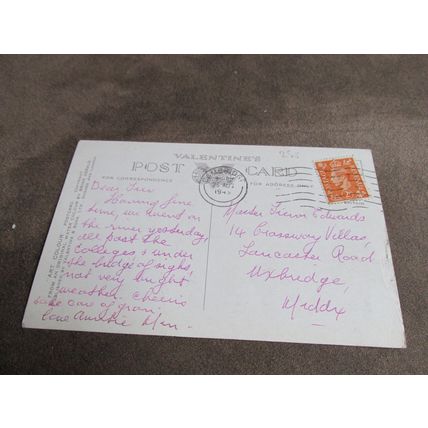 VALENTINE'S
POST CARD
FOR CORRESPONDENCE
FOR ADDRESS ONLY
Dear Trev
Having fine
time, we went on
the river yesterday,
all past the
Colleges & under
the bridge of sighs,
not very bright
weather. Cheerio
take care of gran.
love Auntie
Master Trevor Edwards
14 Crossway Villas,
Lancaster Road
Uxbridge,
Middx